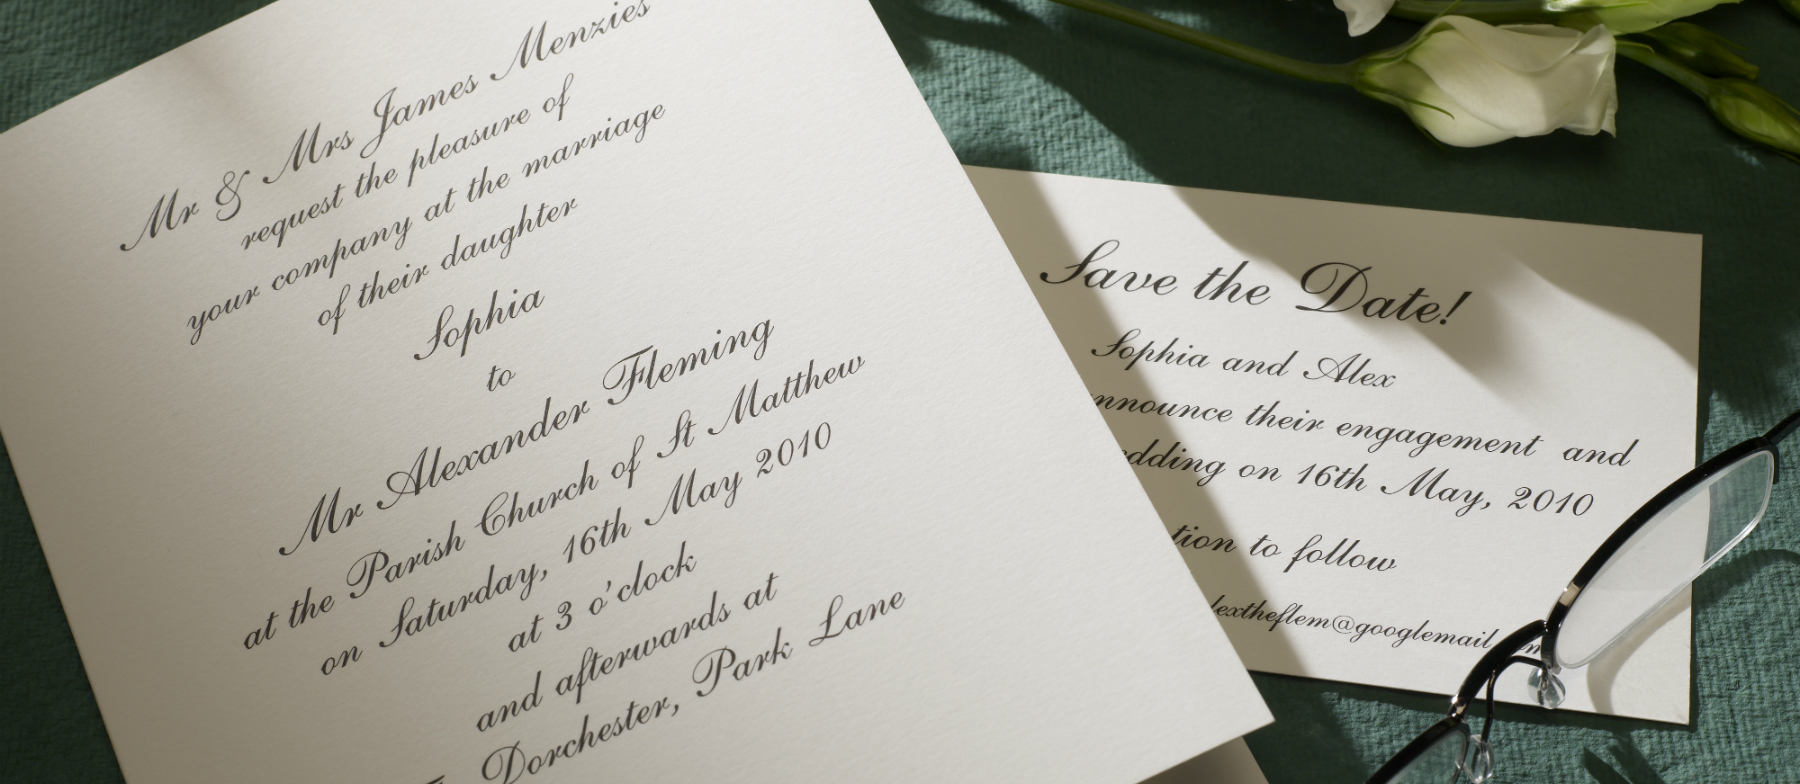 Mr & Mrs James Menzies
request the pleasure of
your company at the marriage
of their daughter
Sophia
to
Mr Alexander Fleming
at the Parish Church of St Matthew
on Saturday, 16th May 2010
at 3 o'clock
and afterwards at
Dorchester, Park Lane
Save the Date!
Sophia and Alex
nnounce their engagement and
dding on 16th May, 2010
tion to follow
lextheflem@googlemail